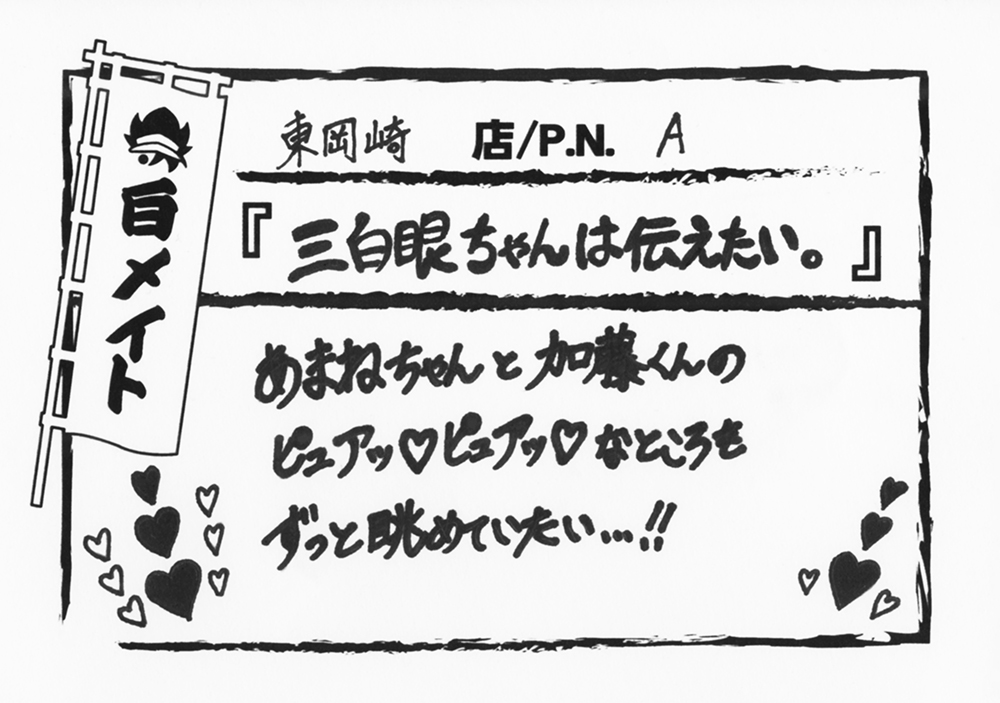 東岡崎 店/P.N. A
『三白眼ちゃんは伝えたい。』
あまねちゃんと加藤くんの
ピュアッ♡ピュアッ♡なところを
ずっと眺めていたい…!!
盲メイト